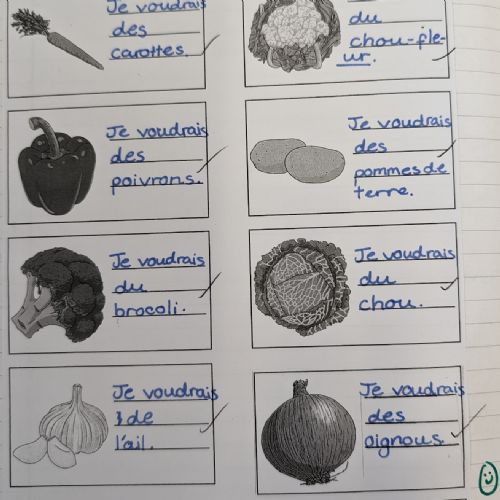 Je voudrais
des
carottes.
Je voudrais
du
chou-fle-
ur.
Je voudrais
des
poivrons.
Je voudrais
des
pommes de
terre.
Je voudrais
du
brocoli.
Je voudrais
du
chou.
Je voudrais
de
l'ail.
Je voudrais
des
oignous.